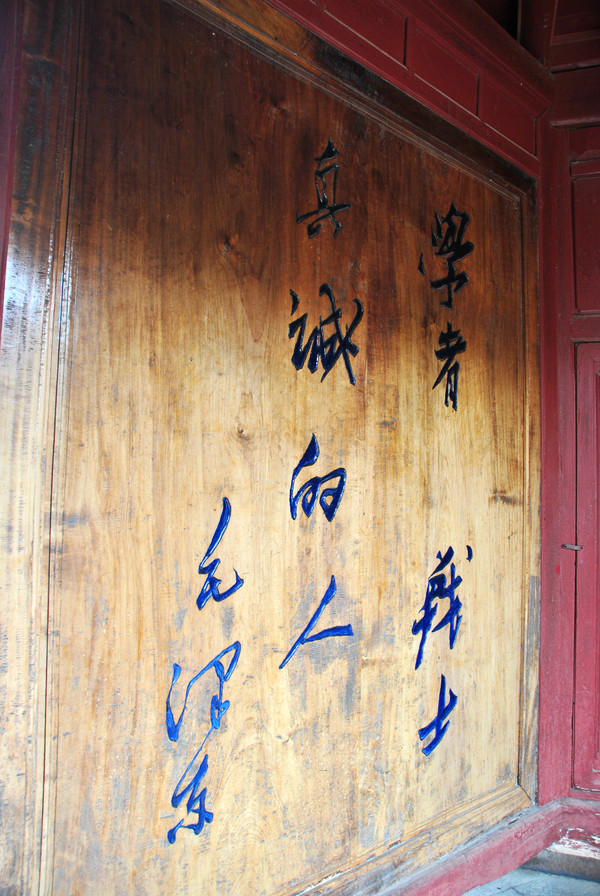 學者 戰士
真誠的人
毛泽东